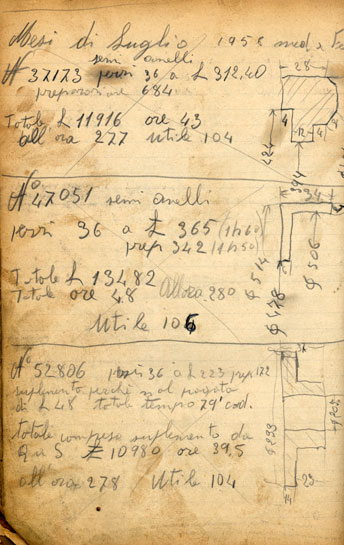 Mesi di Luglio 1958 mod. a
semi anelli
Nº 37173 pezzi 36 a £ 312,40
preparazione 684
Totale £ 11916 ore 43
all'ora 277 Utile 104
28
4
12
4
424
394
Nº 47051 semi anelli
pezzi 36 a £ 365 (1h60)
prep 342 (1h50)
Totale £ 13482
Totale ore 48 All'ora 280
Utile 106
34
ϕ 506
ϕ 514
ϕ 478
Nº 52806 pezzi 36 a £ 223 prep 172
suplemento perchè mal pagata
di £ 48 totale tempo 79' cad.
totale compreso suplemento da
£ 10980 ore 39,5
all'ora 278 Utile 104
ϕ 233
23
14